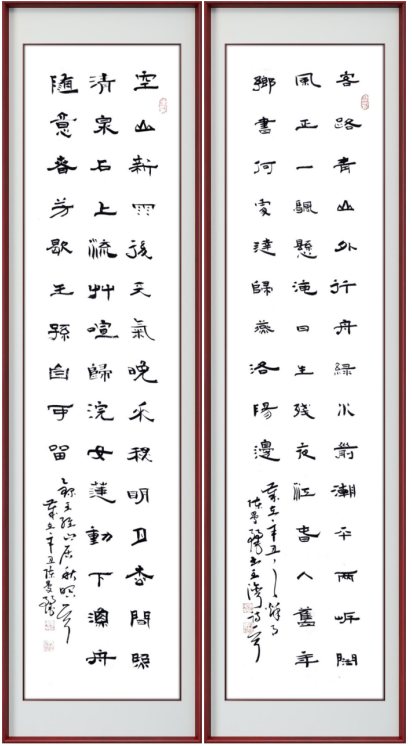 客路青山外行舟綠水前潮平兩岸闊
風正一颿懸海日生殘夜江春入舊年
鄉書何處達歸燕洛陽邊
歲在辛丑
書王灣詩一首
空山新雨後天氣晚来秋明月松間照
清泉石上流竹喧歸浣女蓮動下漁舟
隨意春芳歇王孫自可留
錄王維山居秋暝一首
歲在辛丑